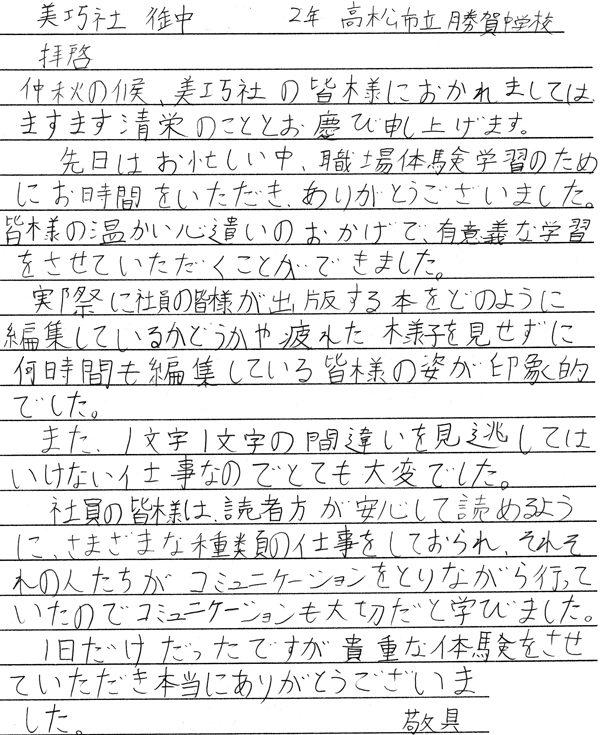 美巧社 御中 2年 高松市立勝賀中学校
拝啓
仲秋の候、美巧社の皆様におかれましては、
ますます清栄のこととお慶び申し上げます。
先日はお忙しい中、職場体験学習のため
にお時間をいただき、ありがとうございました。
皆様の温かい心遣いのおかげで、有意義な学習
をさせていただくことができました。
実際に社員の皆様が出版する本をどのように
編集しているかどうかや疲れた様子を見せずに
何時間も編集している皆様の姿が印象的
でした。
また、1文字1文字の間違いを見逃しては
いけない仕事なのでとても大変でした。
社員の皆様は、読者方が安心して読めるよう
に、さまざまな種類の仕事をしておられ、それぞ
れの人たちがコミュニケーションをとりながら行って
いたのでコミュニケーションも大切だと学びました。
1日だけだったですが貴重な体験をさせ
ていただき本当にありがとうございま
した。 敬具